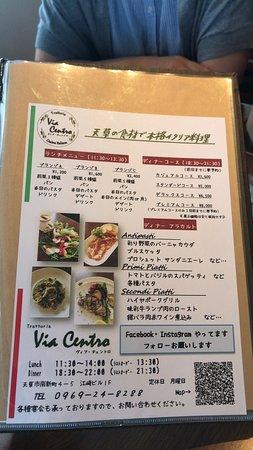 Trattoria
Via
Centro
Cucina Italiana
天草の食材で本格イタリア料理
ランチメニュー (11:30~13:30)
プランゾA
前菜3種盛
パン
本日のパスタ
ドリンク
プランゾB
前菜5種盛
パン
本日のパスタ
デザート
ドリンク
プランゾC
前菜5種盛
パン
本日のパスタ
本日のメイン(肉or魚)
デザート
ドリンク
ディナーコース (18:30~21:30)
(前日までに要予約)
カジュアルコース ¥2,600
スタンダードコース
デラックスコース
プレミアムコース
ディナー アラカルト
Antipasti
彩り野菜のバーニャカウダ
ブルスケッタ
プロシュット サンダニエーレ など…
Primi Piatti
トマトとバジルのスパゲッティ など…
各種パスタ
Secondi Piatti
ハイヤポークグリル
味彩牛ランプ肉のロースト
猪バラ肉赤ワイン煮込み など…
Trattoria
Via Centro
ヴィア・チェントロ
Lunch 11:30~14:00 (ラストオーダー 13:30)
Dinner 18:30~22:00 (ラストオーダー 21:30)
天草市南新町4-5 江崎ビル1F
定休日 月曜日
TEL 0969-24-8288
Map→
各種宴会も承っておりますので、お問い合わせください。
Facebook・Instagram やってます
フォローお願いします